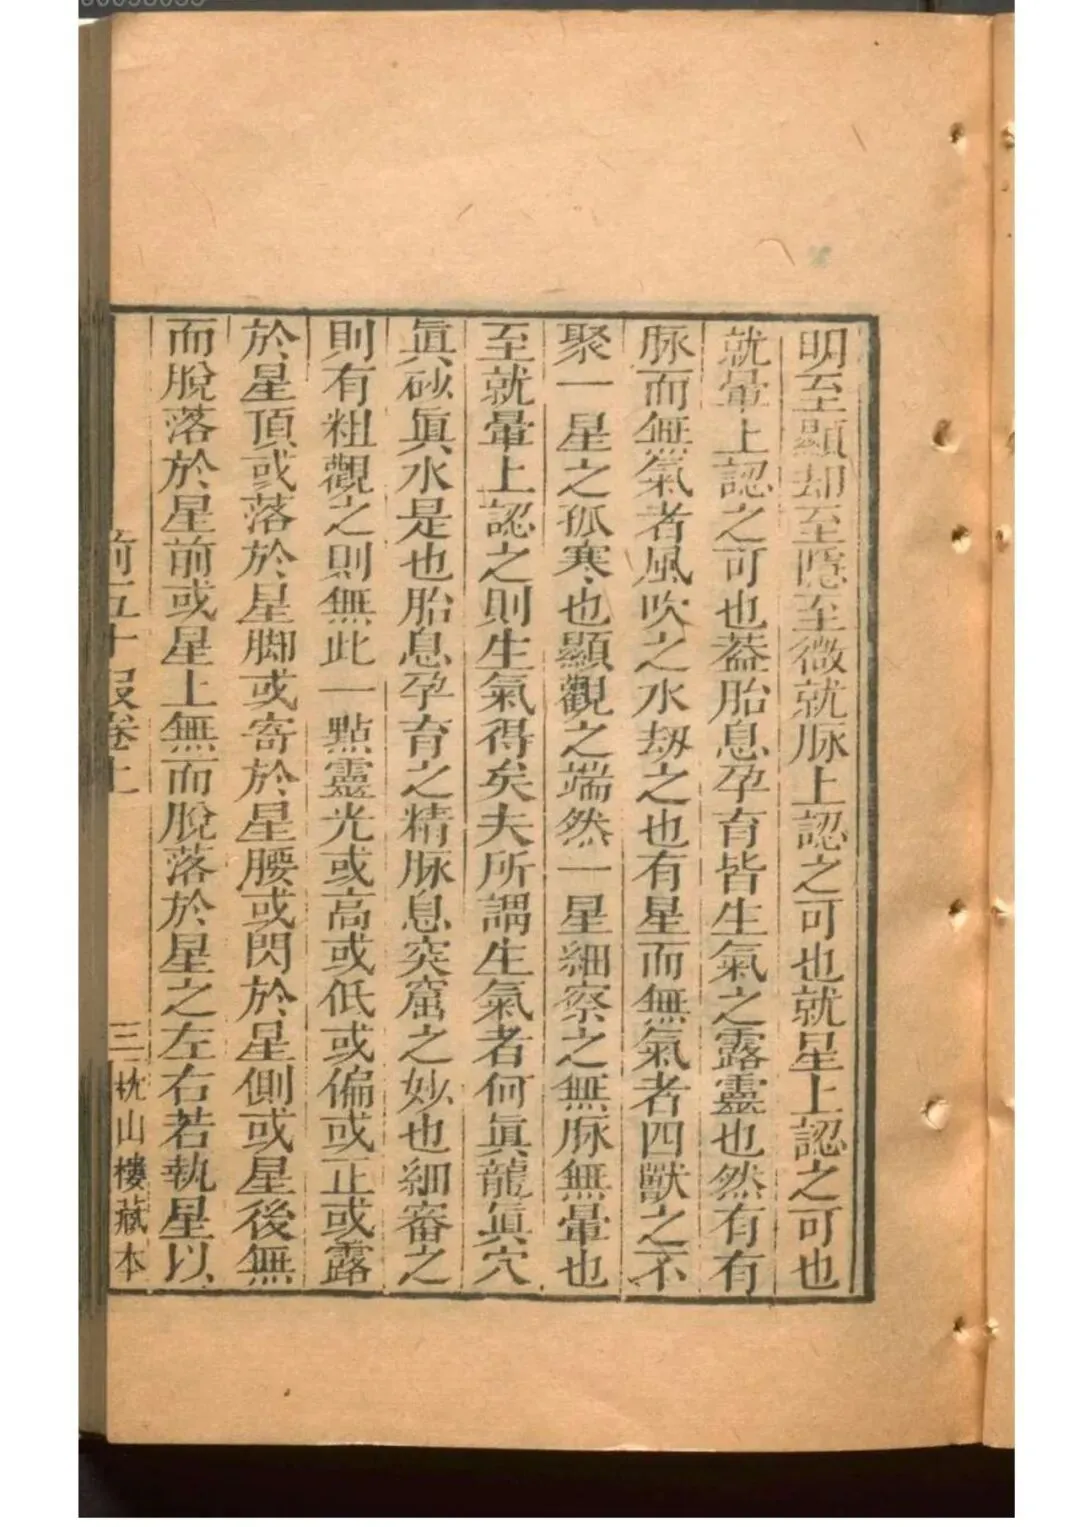 明至顯却至隱至微就脉上認之可也就星上認之可也
就暈上認之可也葢胎息孕育皆生氣之露靈也然有有
脉而無氣者風吹之水刼之也有星而無氣者四獸之不
聚一星之孤寒也顯觀之端然一星細察之無脉無暈也
至就暈上認之則生氣得矣夫所謂生氣者何眞龍眞穴
眞砂眞水是也胎息孕育之精脉息突窟之妙也細審之
則有粗觀之則無此一點靈光或高或低或偏或正或露
於星頂或落於星脚或寄於星腰或閃於星側或星後無
而脫落於星前或星上無而脫落於星之左右若執星以
前五十段卷上 三 枕山樓藏本